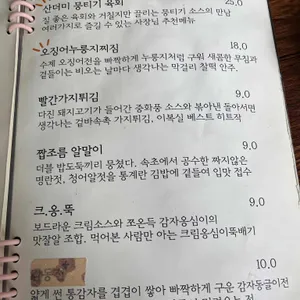 산더미 뭉티기 육회 25.0
질 좋은 육회와 거칠지만 끌리는 뭉티기 소스의 만남
여러가지로 즐길 수 있는 사장님 추천메뉴
오징어누룽지찌짐 18.0
수제 오징어전을 빠짝하게 누룽지처럼 구워 새콤한 무침과
곁들이는 비오는 날마다 생각나는 막걸리 찰떡 안주.
빨간가지튀김 9.0
다진 돼지고기가 들어간 중화풍 소스와 볶아낸 돌아서면
생각나는 겉바속촉 가지튀김, 이복실 베스트 히트작
짭조름 알말이 9.0
더블 밥도둑끼리 뭉쳤다. 속초에서 공수한 짜지않은
명란젓, 청어알젓을 통계란 김밥에 곁들여 입맛 접수
크.옹.뚝 9.0
보드라운 크림소스와 쪼온득 감자옹심이의
맛잘알 조합. 먹어본 사람만 아는 크림옹심이뚝배기
10.0
얇게 썬 통감자를 겹겹이 쌓아 빠짝하게 구운 감자동글이전